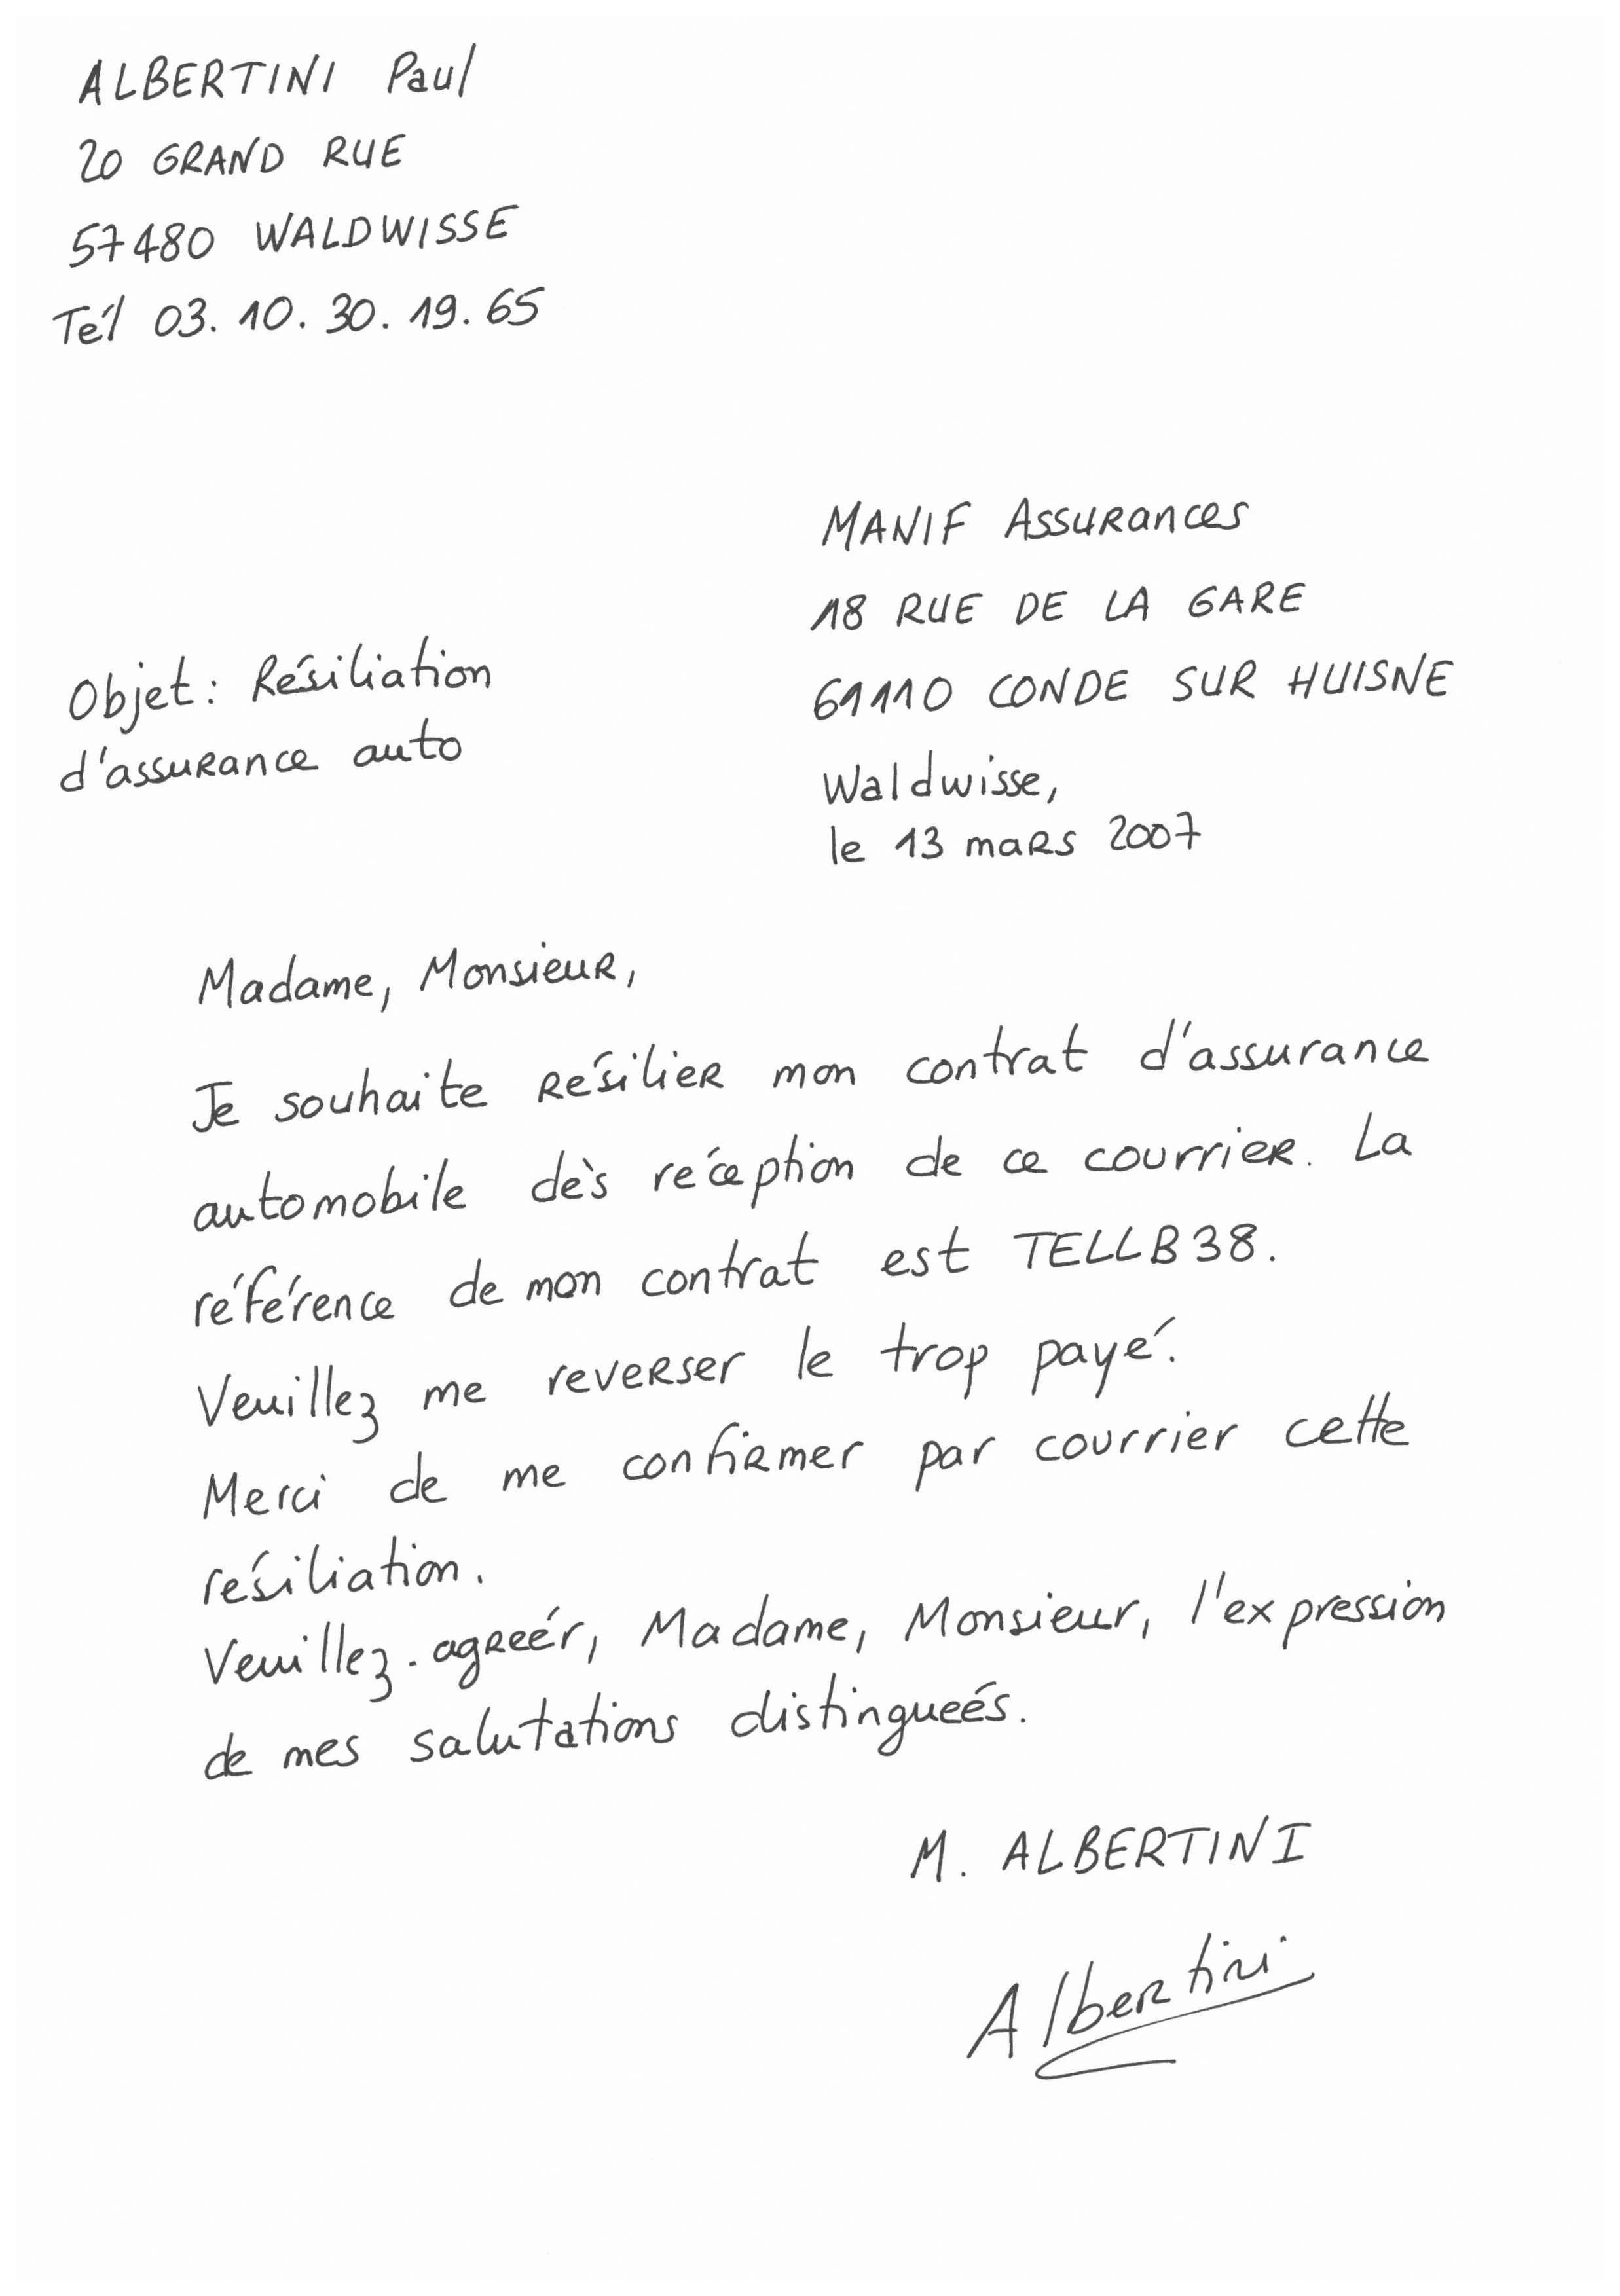 ALBERTINI Paul
20 GRAND RUE
57480 WALDWISSE
Tél 03.10.30.19.65
MANIF Assurances
18 RUE DE LA GARE
61110 CONDE SUR HUISNE
Objet: Résiliation
d'assurance auto
Waldwisse,
le 13 mars 2007
Madame, Monsieur,
Je souhaite résilier mon contrat d'assurance
automobile dès réception de ce courrier. La
référence de mon contrat est TELLB38.
Veuillez me reverser le trop payé.
Merci de me confirmer par courrier cette
résiliation.
Veuillez-agréer, Madame, Monsieur, l'expression
de mes salutations distinguées.
M. ALBERTINI
Albertini